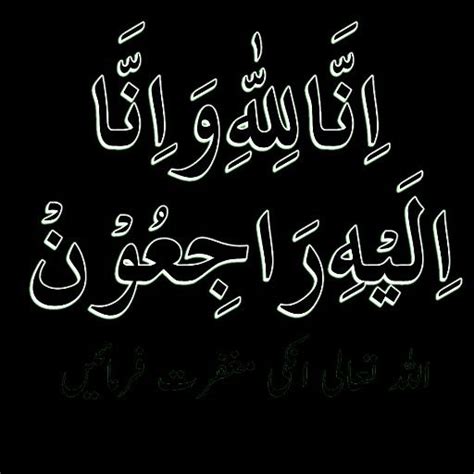 اِنَّا لِلّٰهِ وَ اِنَّا
اِلَيْهِ رَاجِعُوْنْ
اللہ تعالی انکی مغفرت فرمائیں